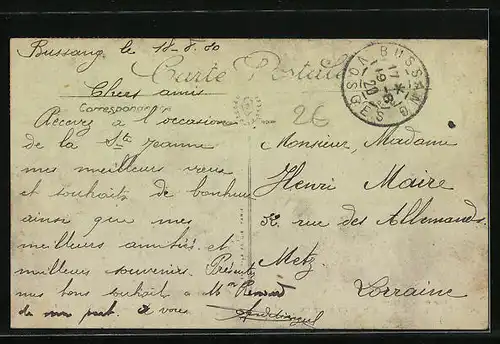 Bussang le 18-8.20
Carte Postale
Chers amis
Correspondance
Recevez à l'occasion
de la Ste Jeanne
mes meilleurs vœux
et souhaits de bonheur
ainsi que mes
meilleurs amitiés et
meilleurs souvenirs. Présentez
mes bons souhaits à Mr
de ma part. à vous
BUSSANG
17 *
19-8
20
VOSGES
26
Monsieur, Madame
Henri Maire
rue des Allemands
Metz
Lorraine